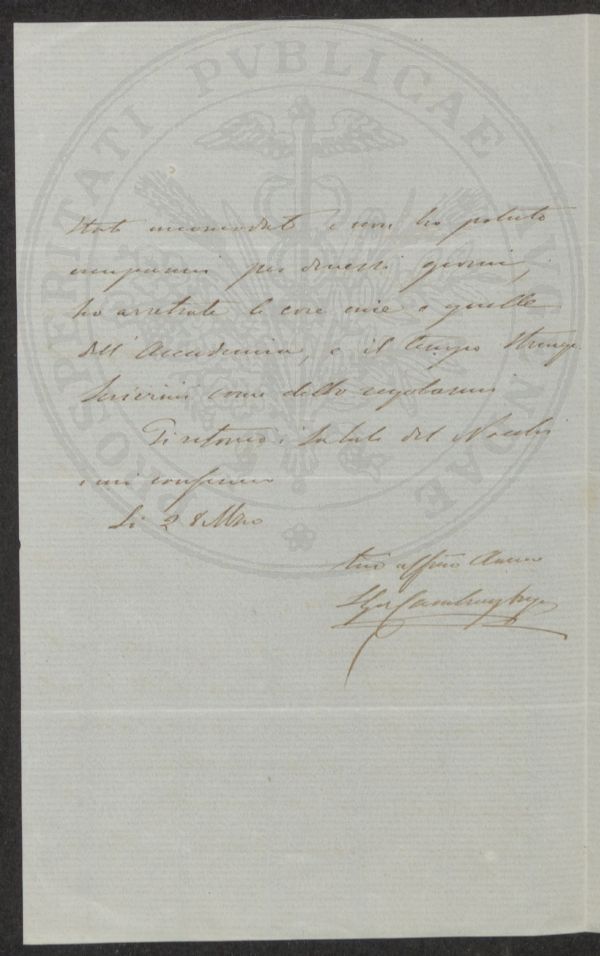 PROSPERITATI PVBLICAE AVGENDAE
stato incomodato e non ho potuto
occuparmi per diversi giorni,
ho arretrate le cose mie e quelle
dell'Accademia, e il tempo stringe
Scrivimi come debbo regolarmi
Ti ritorno i saluti del
e mi confermo
Li 28 Mzo
tuo affmo Amico